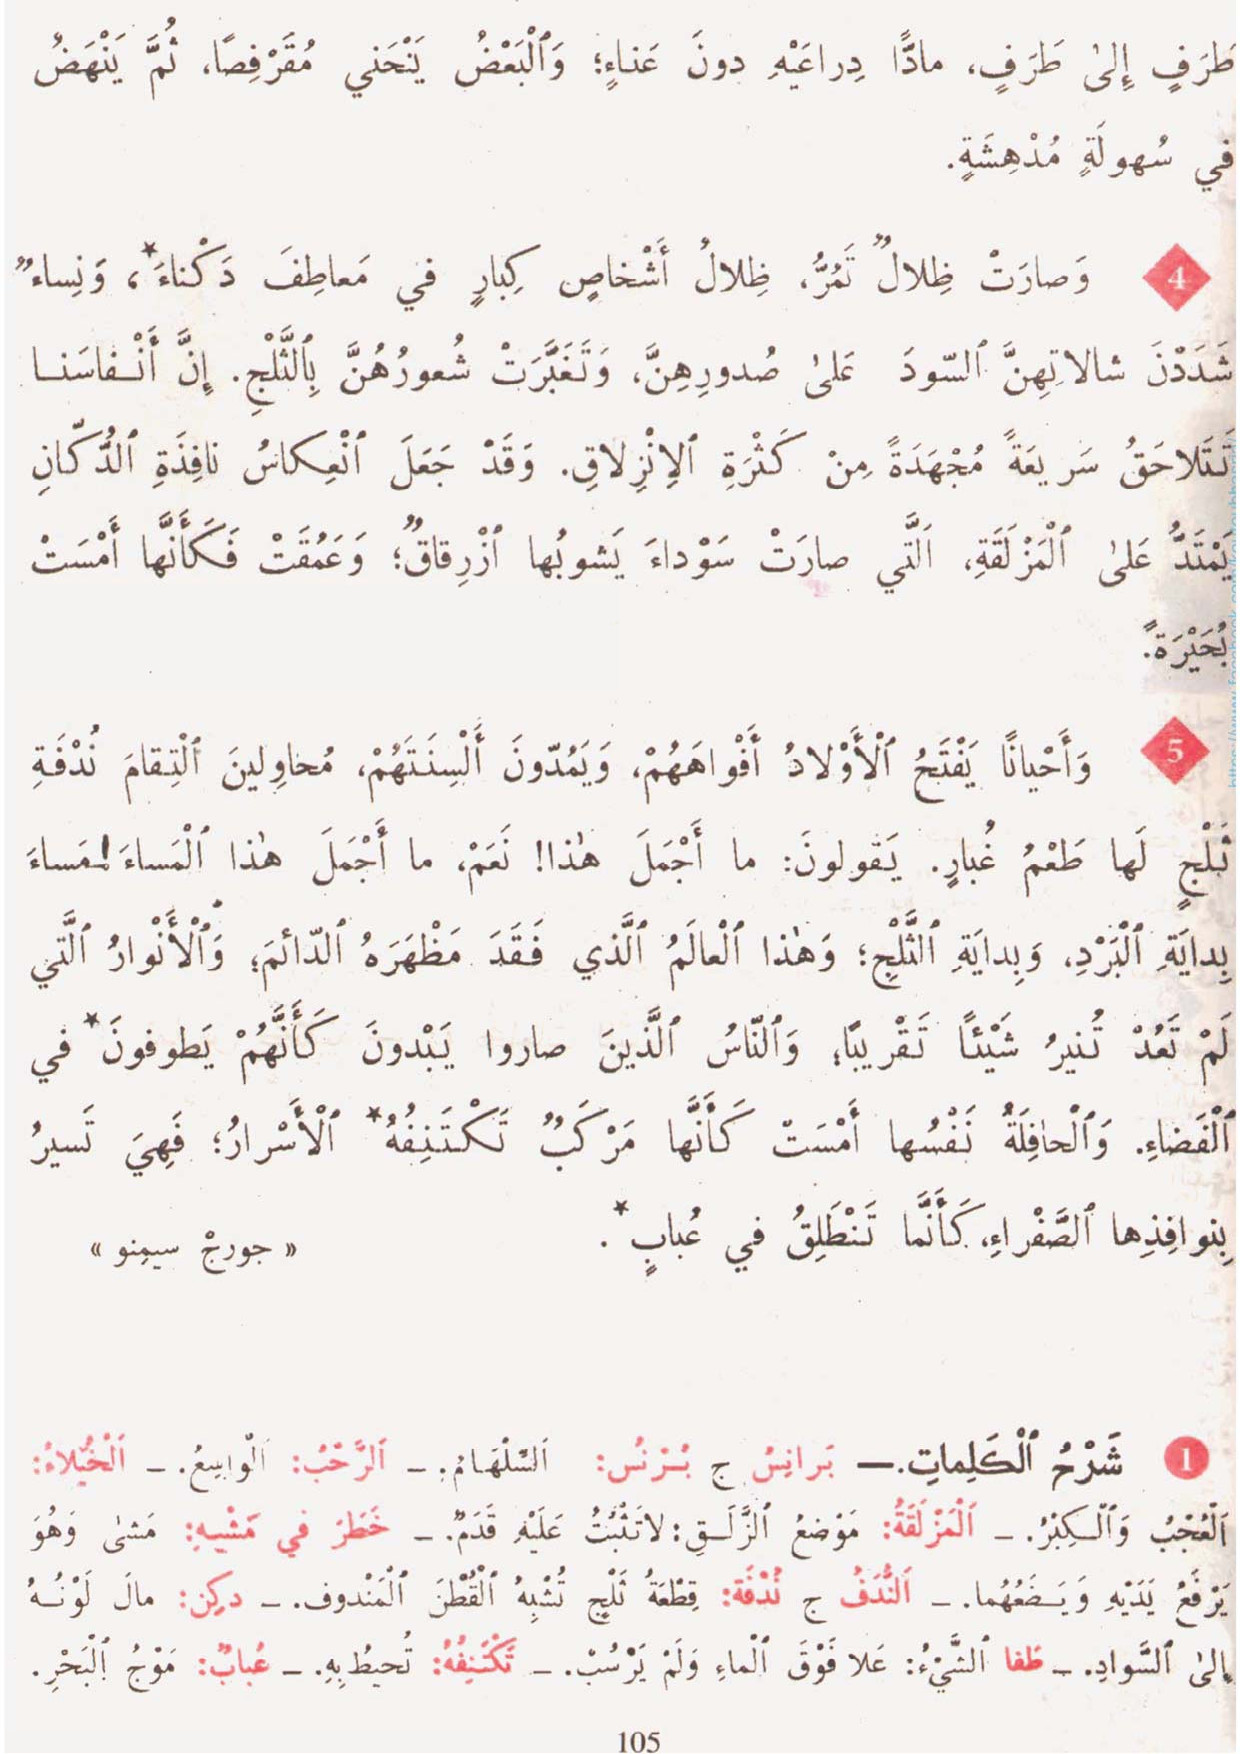 طَرَفٍ إِلىٰ طَرَفٍ، مادًّا ذِراعَيْهِ دونَ عَناءٍ؛ وَٱلْبَعْضُ يَنْحَني مُقَرْفِصًا، ثُمَّ يَنْهَضُ
في سُهولَةٍ مُدْهِشَةٍ.
4 وَصارَتْ ظِلالٌ تَمُرُّ، ظِلالُ أَشْخاصٍ كِبارٍ في مَعاطِفَ دَكْناءَ*، وَنِساءٌ
شَدَدْنَ شالاتِهِنَّ ٱلسّودَ عَلىٰ صُدورِهِنَّ، وَتَغَبَّرَتْ شُعورُهُنَّ بِٱلثَّلْجِ. إِنَّ أَنْفاسَنا
تَتَلاحَقُ سَريعَةً مُجْهَدَةً مِنْ كَثْرَةِ ٱلِانْزِلاقِ. وَقَدْ جَعَلَ ٱنْعِكاسُ نافِذَةِ ٱلدُّكّانِ
يَمْتَدُّ عَلىٰ ٱلْمَزْلَقَةِ، ٱلَّتي صارَتْ سَوْداءَ يَشوبُها ٱزْرِقاقٌ؛ وَعَمُقَتْ فَكَأَنَّها أَمْسَتْ
بُحَيْرَةً.
5 وَأَحْيانًا يَفْتَحُ ٱلْأَوْلادُ أَفْواهَهُمْ، وَيَمُدّونَ أَلْسِنَتَهُمْ، مُحاوِلينَ ٱلْتِقامَ نُدْفَةِ
ثَلْجٍ لَها طَعْمُ غُبارٍ. يَقولونَ: ما أَجْمَلَ هٰذا! نَعَمْ، ما أَجْمَلَ هٰذا ٱلْمَساءَ! مَساءَ
بِدايَةِ ٱلْبَرْدِ، وَبِدايَةِ ٱلثَّلْجِ؛ وَهٰذا ٱلْعالَمُ ٱلَّذي فَقَدَ مَظْهَرَهُ ٱلدّائمَ؛ وَٱلْأَنْوارُ ٱلَّتي
لَمْ تَعُدْ تُنيرُ شَيْئاً تَقْريبًا؛ وَٱلنّاسُ ٱلَّذينَ صاروا يَبْدونَ كَأَنَّهُمْ يَطوفونَ* في
ٱلْفَضاءِ. وَٱلْحافِلَةُ نَفْسُها أَمْسَتْ كَأَنَّها مَرْكَبٌ تَكْتَنِفُهُ* ٱلْأَسْرارُ؛ فَهِيَ تَسيرُ
بِنوافِذِها ٱلصَّفْراءِ، كَأَنَّما تَنْطَلِقُ في عُبابٍ*.
« جورجْ سيمِنو »
1 شَرْحُ ٱلْكَلِماتِ. — بَرانِسُ ج بُرْنُس: اَلسَّلْهَامُ. – اَلرَّحْبُ: اَلْواسِعُ. – اَلْخُيَلاءُ:
اَلْعُجْبُ وَٱلْكِبْرُ. – اَلْمَزْلَقَةُ: مَوْضِعُ ٱلزَّلَقِ: لاَتَثْبُتُ عَلَيْهِ قَدَمٌ. – خَطَرَ في مَشْيِهِ: مَشىٰ وَهُوَ
يَرْفَعُ يَدَيْهِ وَيَضَعُهُما. – اَلنُّدَفُ ج نُدْفَة: قِطْعَةُ ثَلْجٍ تُشْبِهُ ٱلْقُطْنَ ٱلْمَنْدوف. – دَكِن: مالَ لَوْنُهُ
إِلىٰ ٱلسَّوادِ. – طَفا ٱلشَّيْءُ: عَلا فَوْقَ ٱلْماءِ وَلَمْ يَرْسُبْ. – تَكْتَنِفُهُ: تُحيطُ بِهِ. – عُبابٌ: مَوْجُ ٱلْبَحْرِ.
105